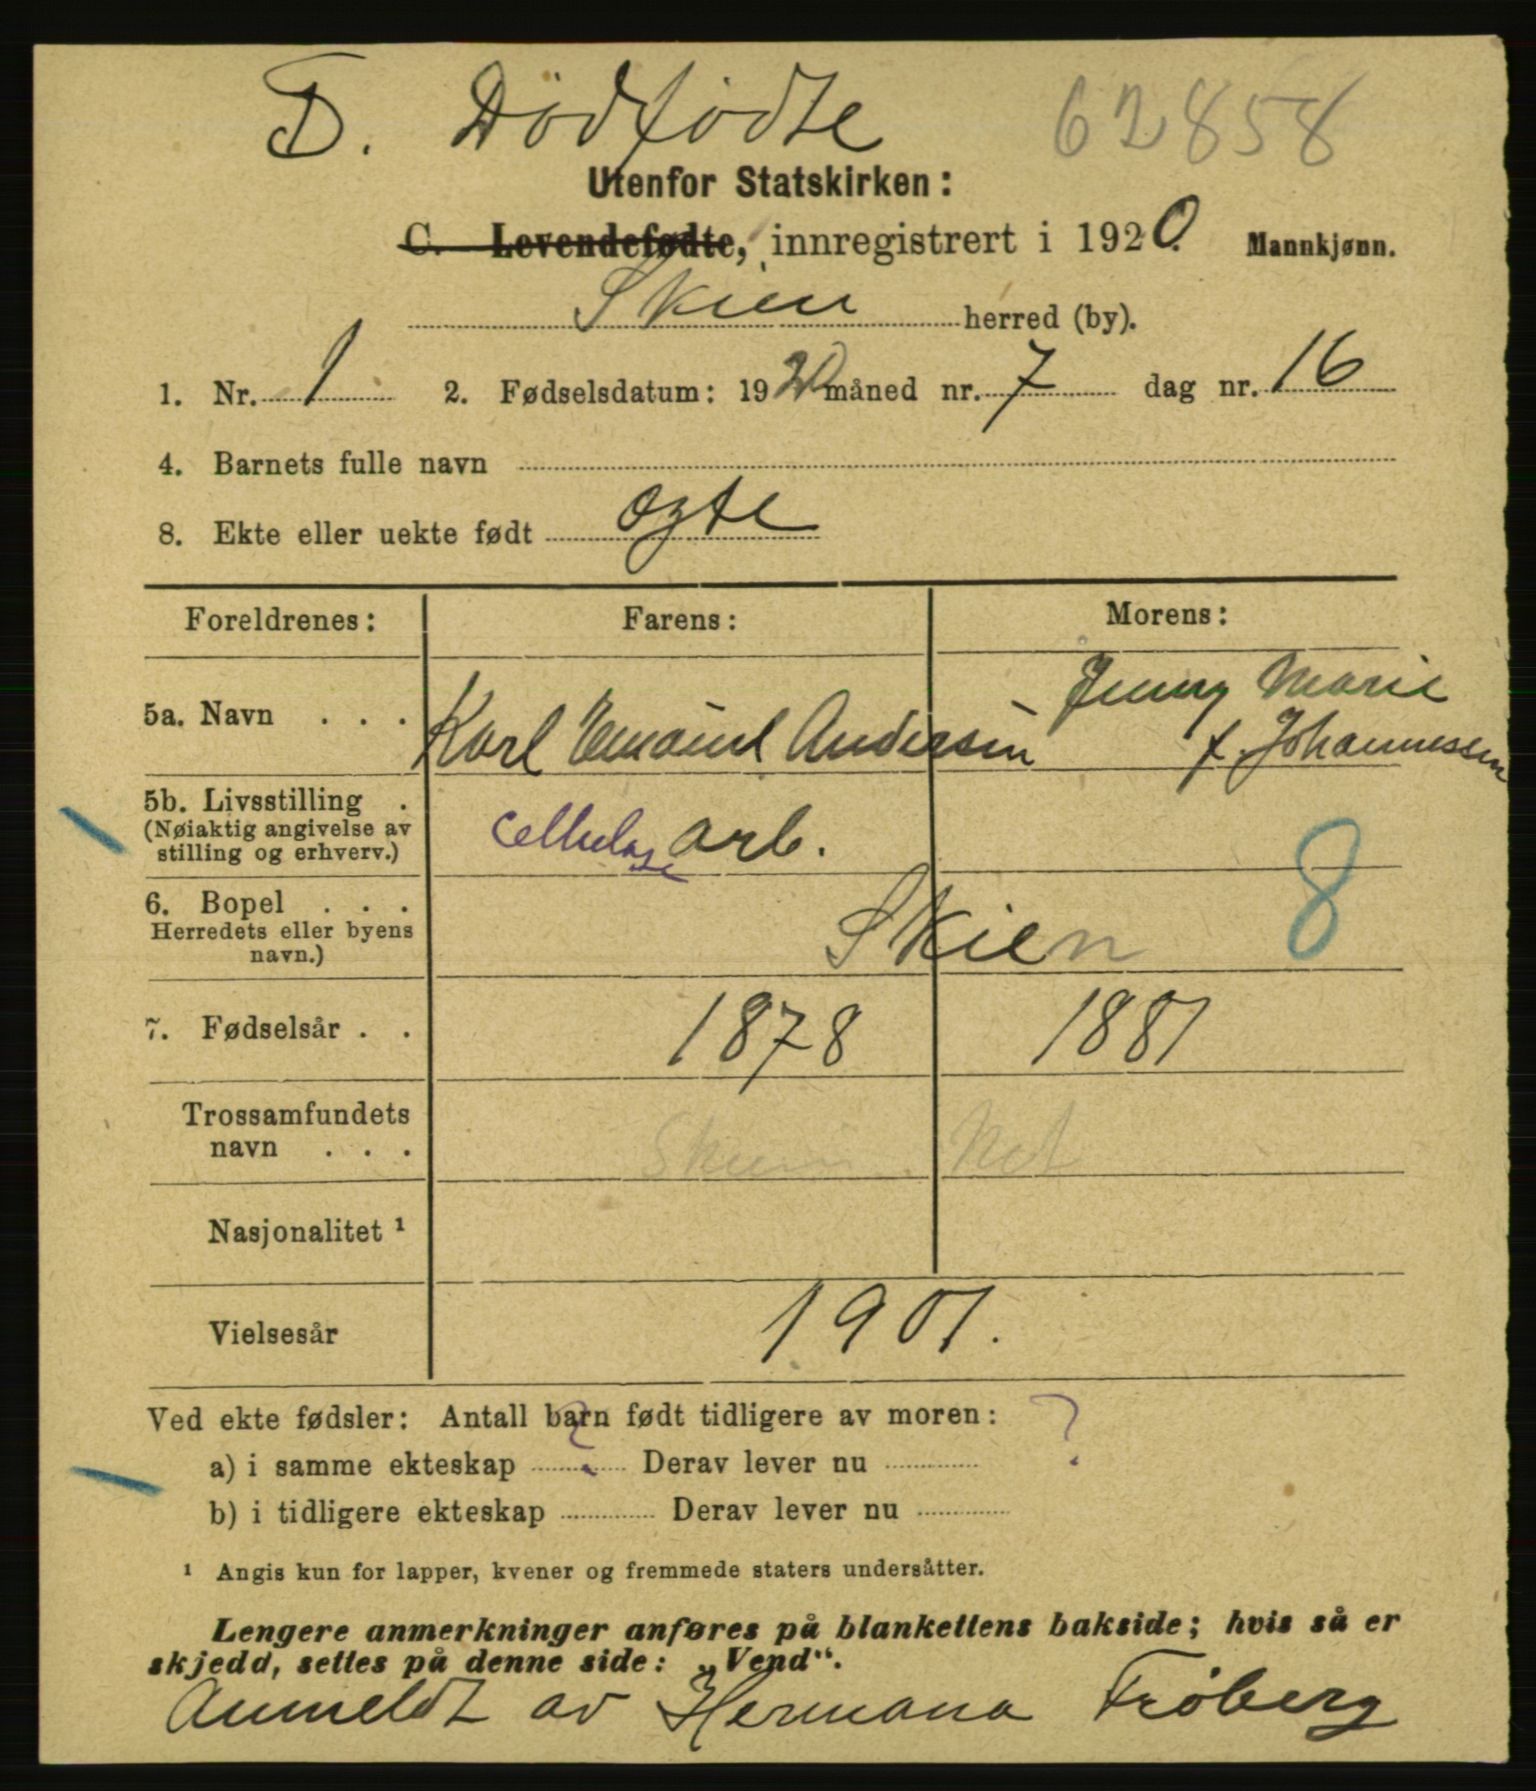 D. Dødfødte 62858
Utenfor Statskirken:
C. Levendefødte, innregistrert i 1920. Mannkjønn.
Skien herred (by).
1. Nr. 1 2. Fødselsdatum: 1920 måned nr. 7 dag nr. 16
4. Barnets fulle navn
8. Ekte eller uekte født egte
Foreldrenes: Farens: Morens:
5a. Navn . . . Karl Emanuel Andersen Jenny Marie
f. Johannessen
5b. Livsstilling .
(Nøiaktig angivelse av
stilling og erhverv.) cellulose arb.
8
6. Bopel . . . Skien
Herredets eller byens
navn.)
7. Fødselsår . . 1878 1881
Trossamfundets
navn . . . Skien Met
Nasjonalitet ¹
Vielsesår 1901.
Ved ekte fødsler: Antall barn født tidligere av moren: ?
a) i samme ekteskap ? Derav lever nu
b) i tidligere ekteskap Derav lever nu
¹ Angis kun for lapper, kvener og fremmede staters undersåtter.
Lengere anmerkninger anføres på blankettens bakside; hvis så er
skjedd, settes på denne side: „Vend“.
Anmeldt av Hermana Frøberg